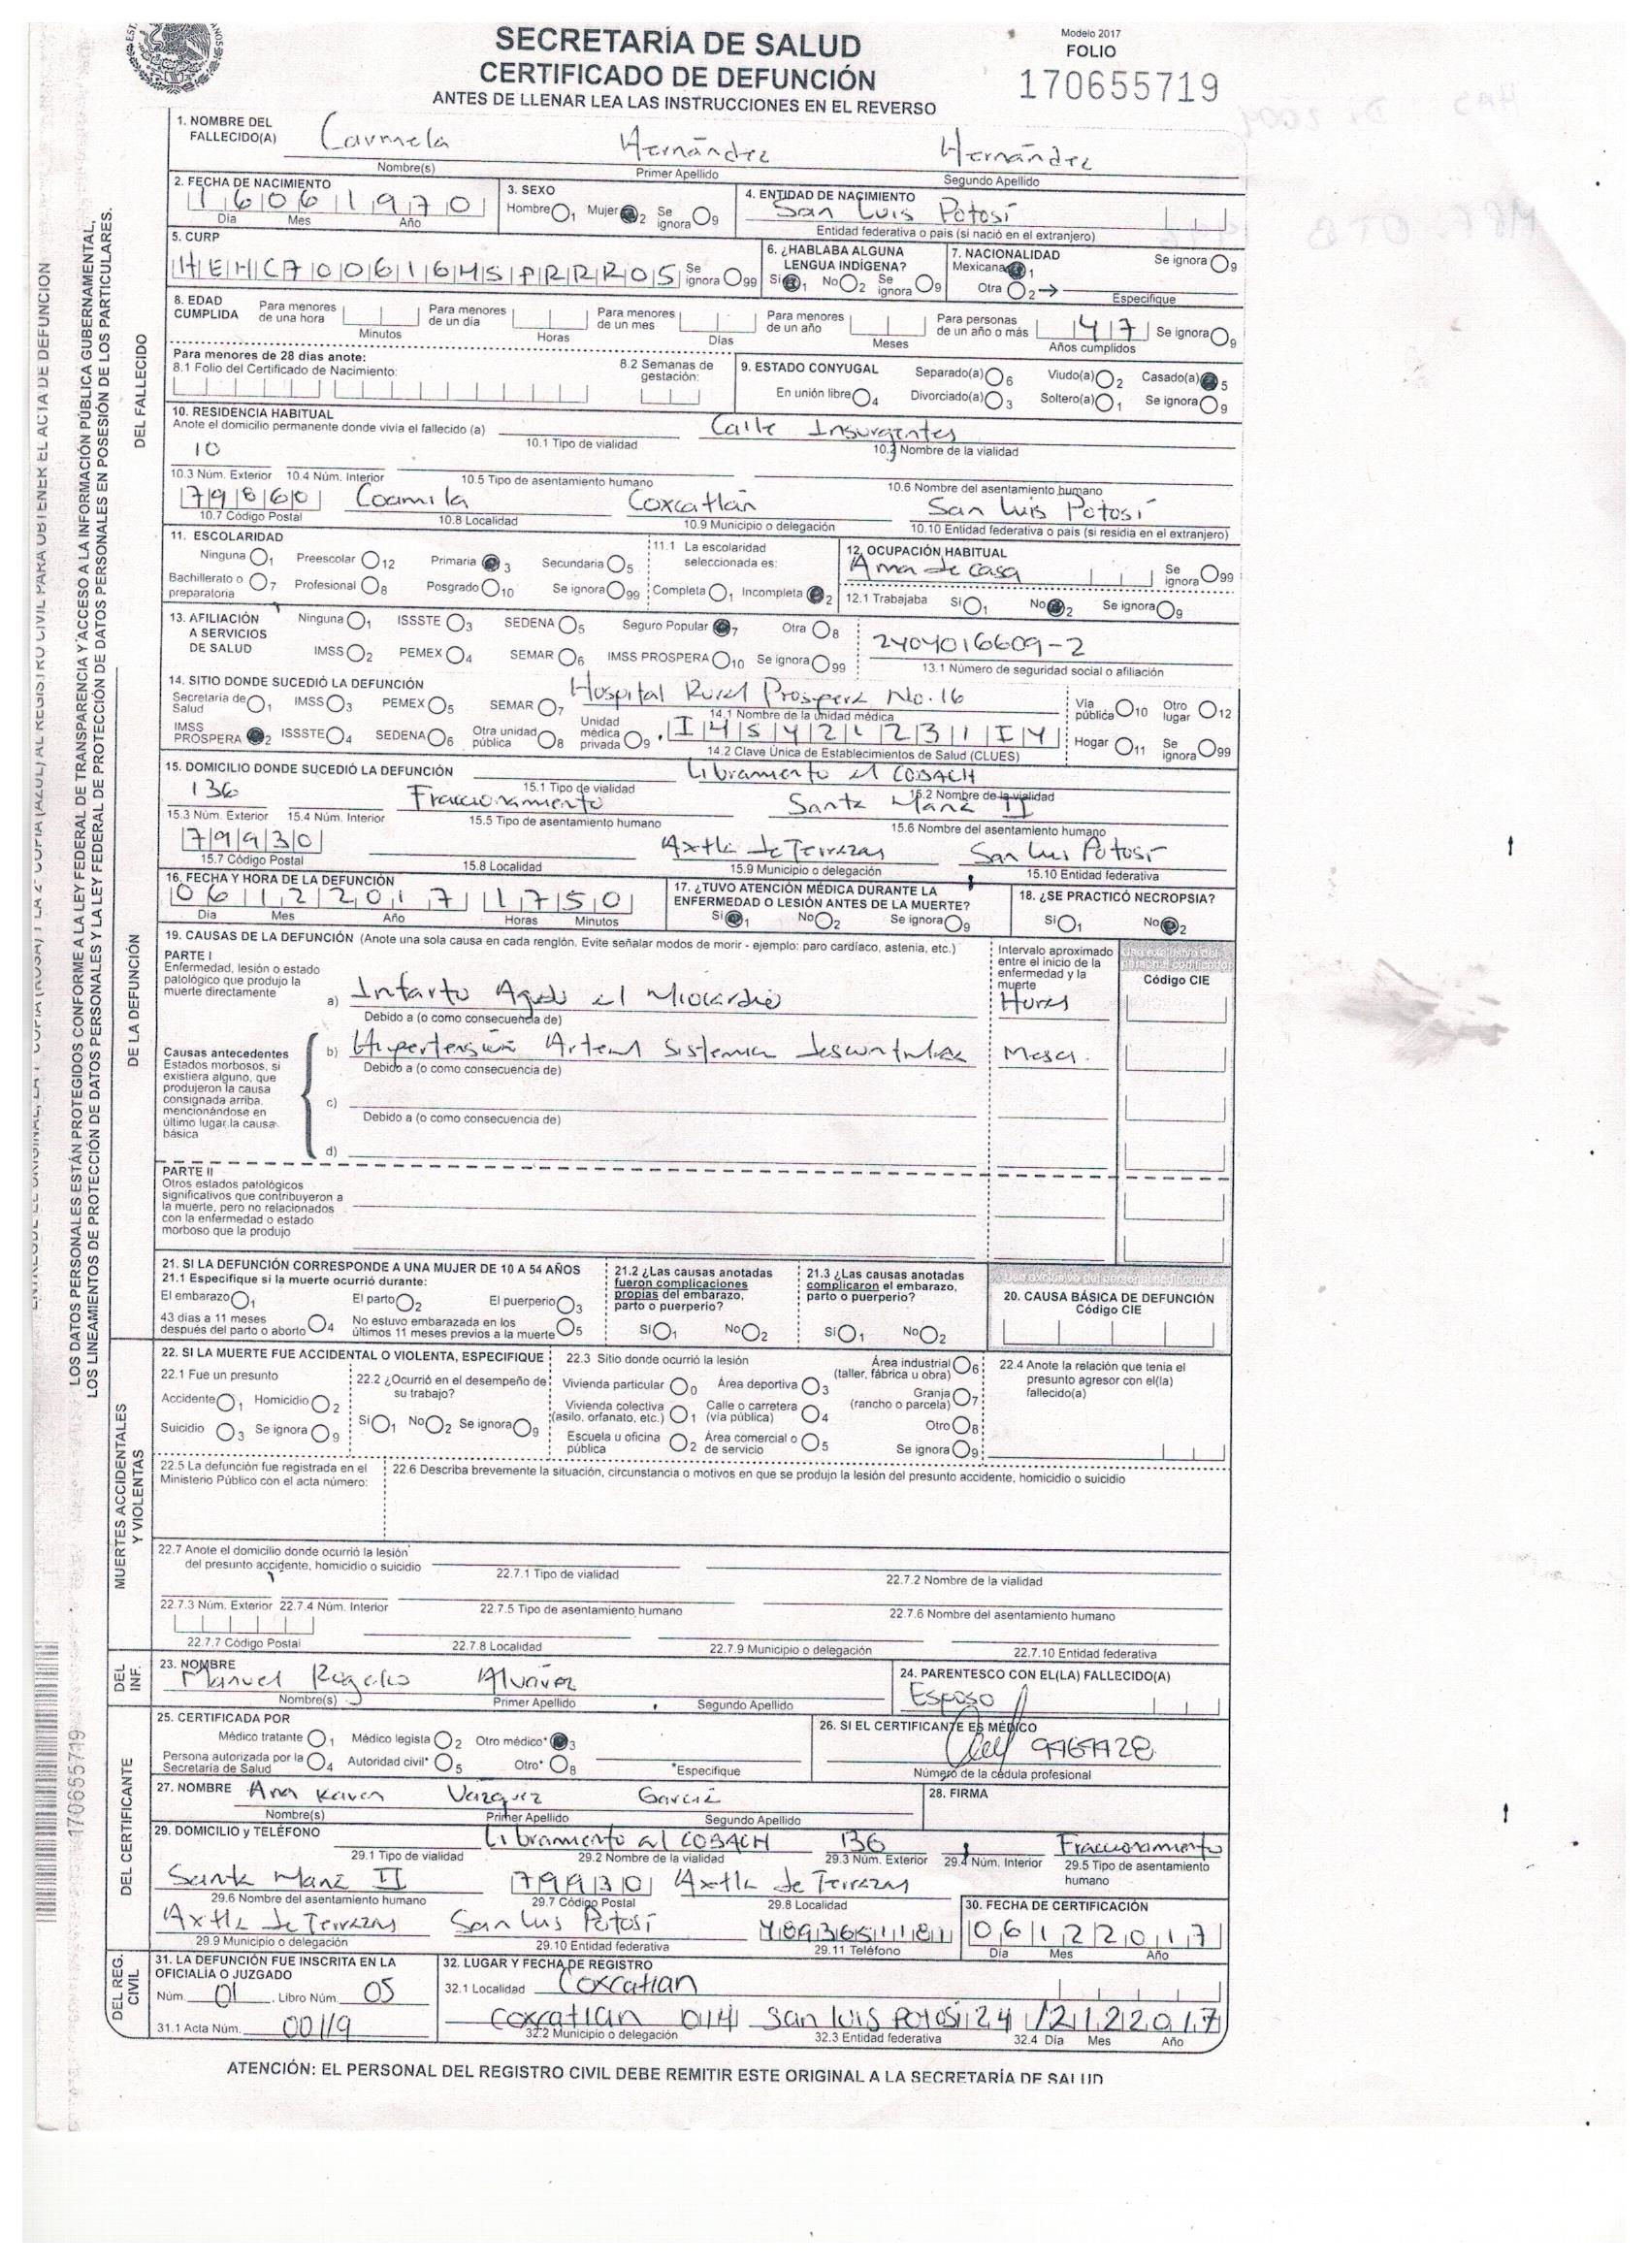 SECRETARÍA DE SALUD
CERTIFICADO DE DEFUNCIÓN
ANTES DE LLENAR LEA LAS INSTRUCCIONES EN EL REVERSO
Modelo 2017
FOLIO
170655719
1. NOMBRE DEL FALLECIDO(A) Carmela Hernández Hernández
Nombre(s) Primer Apellido Segundo Apellido
2. FECHA DE NACIMIENTO 16 06 1970
Día Mes Año
3. SEXO
Hombre 1 Mujer 2 Se ignora 9
4. ENTIDAD DE NACIMIENTO
San Luis Potosí
Entidad federativa o país (si nació en el extranjero)
5. CURP
HEHC700616MSPRRR05 Se ignora 99
6. ¿HABLABA ALGUNA LENGUA INDÍGENA?
Sí 1 No 2 Se ignora 9
7. NACIONALIDAD
Mexicana 1 Se ignora 9
Otra 2 Especifique
8. EDAD CUMPLIDA
Para menores de una hora Minutos
Para menores de un día Horas
Para menores de un mes Días
Para menores de un año Meses
Para personas de un año o más 47 Años cumplidos
Se ignora 9
Para menores de 28 días anote:
8.1 Folio del Certificado de Nacimiento:
8.2 Semanas de gestación:
9. ESTADO CONYUGAL
Separado(a) 6 Viudo(a) 2 Casado(a) 5
En unión libre 4 Divorciado(a) 3 Soltero(a) 1 Se ignora 9
10. RESIDENCIA HABITUAL
Anote el domicilio permanente donde vivía el fallecido (a)
Calle Insurgentes
10.1 Tipo de vialidad 10.2 Nombre de la vialidad
10
10.3 Núm. Exterior 10.4 Núm. Interior 10.5 Tipo de asentamiento humano 10.6 Nombre del asentamiento humano
79860 Coamila Coxcatlán San Luis Potosí
10.7 Código Postal 10.8 Localidad 10.9 Municipio o delegación 10.10 Entidad federativa o país (si residía en el extranjero)
11. ESCOLARIDAD
Ninguna 1 Preescolar 12 Primaria 3 Secundaria 5
Bachillerato o preparatoria 7 Profesional 8 Posgrado 10 Se ignora 99
11.1 La escolaridad seleccionada es:
Completa 1 Incompleta 2
12. OCUPACIÓN HABITUAL
Ama de casa Se ignora 99
12.1 Trabajaba Sí 1 No 2 Se ignora 9
13. AFILIACIÓN A SERVICIOS DE SALUD
Ninguna 1 ISSSTE 3 SEDENA 5 Seguro Popular 7 Otra 8
IMSS 2 PEMEX 4 SEMAR 6 IMSS PROSPERA 10 Se ignora 99
2404016609-2
13.1 Número de seguridad social o afiliación
14. SITIO DONDE SUCEDIÓ LA DEFUNCIÓN
Secretaría de Salud 1 IMSS 3 PEMEX 5 SEMAR 7
IMSS PROSPERA 2 ISSSTE 4 SEDENA 6 Otra unidad pública 8 Unidad médica privada 9
Hospital Rural Prospera No. 16
14.1 Nombre de la unidad médica
14.2 Clave Única de Establecimientos de Salud (CLUES)
Vía pública 10 Otro lugar 12
Hogar 11 Se ignora 99
15. DOMICILIO DONDE SUCEDIÓ LA DEFUNCIÓN
Libramiento al COBACH
15.1 Tipo de vialidad 15.2 Nombre de la vialidad
136 Fraccionamiento Santa María II
15.3 Núm. Exterior 15.4 Núm. Interior 15.5 Tipo de asentamiento humano 15.6 Nombre del asentamiento humano
79930 Axtla de Terrazas San Luis Potosí
15.7 Código Postal 15.8 Localidad 15.9 Municipio o delegación 15.10 Entidad federativa
16. FECHA Y HORA DE LA DEFUNCIÓN
06 12 2017 17 50
Día Mes Año Horas Minutos
17. ¿TUVO ATENCIÓN MÉDICA DURANTE LA ENFERMEDAD O LESIÓN ANTES DE LA MUERTE?
Sí 1 No 2 Se ignora 9
18. ¿SE PRACTICÓ NECROPSIA?
Sí 1 No 2
19. CAUSAS DE LA DEFUNCIÓN (Anote una sola causa en cada renglón. Evite señalar modos de morir - ejemplo: paro cardíaco, astenia, etc.)
Intervalo aproximado entre el inicio de la enfermedad y la muerte
Código CIE
PARTE I
Enfermedad, lesión o estado patológico que produjo la muerte directamente
a) Infarto Agudo al Miocardio Horas
Debido a (o como consecuencia de)
Causas antecedentes
Estados morbosos, si existiera alguno, que produjeron la causa consignada arriba, mencionándose en último lugar la causa básica
b) Hipertensión Arterial Sistemica
Debido a (o como consecuencia de)
c)
Debido a (o como consecuencia de)
d)
PARTE II
Otros estados patológicos significativos que contribuyeron a la muerte, pero no relacionados con la enfermedad o estado morboso que la produjo
21. SI LA DEFUNCIÓN CORRESPONDE A UNA MUJER DE 10 A 54 AÑOS
21.1 Especifique si la muerte ocurrió durante:
El embarazo 1 El parto 2 El puerperio 3
43 días a 11 meses después del parto o aborto 4 No estuvo embarazada en los últimos 11 meses previos a la muerte 5
21.2 ¿Las causas anotadas fueron complicaciones propias del embarazo, parto o puerperio?
Sí 1 No 2
21.3 ¿Las causas anotadas complicaron el embarazo, parto o puerperio?
Sí 1 No 2
20. CAUSA BÁSICA DE DEFUNCIÓN
Código CIE
22. SI LA MUERTE FUE ACCIDENTAL O VIOLENTA, ESPECIFIQUE
22.1 Fue un presunto
Accidente 1 Homicidio 2
Suicidio 3 Se ignora 9
22.2 ¿Ocurrió en el desempeño de su trabajo?
Sí 1 No 2 Se ignora 9
22.3 Sitio donde ocurrió la lesión
Vivienda particular 0 Área deportiva 3 Área industrial (taller, fábrica u obra) 6
Vivienda colectiva (asilo, orfanato, etc.) 1 Calle o carretera (vía pública) 4 Granja (rancho o parcela) 7
Escuela u oficina pública 2 Área comercial o de servicio 5 Otro 8
Se ignora 9
22.4 Anote la relación que tenía el presunto agresor con el(la) fallecido(a)
22.5 La defunción fue registrada en el Ministerio Público con el acta número:
22.6 Describa brevemente la situación, circunstancia o motivos en que se produjo la lesión del presunto accidente, homicidio o suicidio
22.7 Anote el domicilio donde ocurrió la lesión del presunto accidente, homicidio o suicidio
22.7.1 Tipo de vialidad 22.7.2 Nombre de la vialidad
22.7.3 Núm. Exterior 22.7.4 Núm. Interior 22.7.5 Tipo de asentamiento humano 22.7.6 Nombre del asentamiento humano
22.7.7 Código Postal 22.7.8 Localidad 22.7.9 Municipio o delegación 22.7.10 Entidad federativa
23. NOMBRE
Manuel Rogelio
Nombre(s) Primer Apellido Segundo Apellido
24. PARENTESCO CON EL(LA) FALLECIDO(A)
Esposo
25. CERTIFICADA POR
Médico tratante 1 Médico legista 2 Otro médico* 3
Persona autorizada por la Secretaría de Salud 4 Autoridad civil* 5 Otro* 8 *Especifique
26. SI EL CERTIFICANTE ES MÉDICO
Número de la cédula profesional
27. NOMBRE Ana Karen Vázquez García
Nombre(s) Primer Apellido Segundo Apellido
28. FIRMA
29. DOMICILIO y TELÉFONO
Libramiento al COBACH 136 Fraccionamiento
29.1 Tipo de vialidad 29.2 Nombre de la vialidad 29.3 Núm. Exterior 29.4 Núm. Interior 29.5 Tipo de asentamiento humano
Santa María II 79930 Axtla de Terrazas
29.6 Nombre del asentamiento humano 29.7 Código Postal 29.8 Localidad
Axtla de Terrazas San Luis Potosí
29.9 Municipio o delegación 29.10 Entidad federativa 29.11 Teléfono
30. FECHA DE CERTIFICACIÓN
06 12 2017
Día Mes Año
31. LA DEFUNCIÓN FUE INSCRITA EN LA OFICIALÍA O JUZGADO
Núm. 01 Libro Núm. 05
31.1 Acta Núm. 00119
32. LUGAR Y FECHA DE REGISTRO
32.1 Localidad Coxcatlan
Coxcatlan 014 San Luis Potosí 24 12 12 2017
32.2 Municipio o delegación 32.3 Entidad federativa 32.4 Día Mes Año
ATENCIÓN: EL PERSONAL DEL REGISTRO CIVIL DEBE REMITIR ESTE ORIGINAL A LA SECRETARÍA DE SALUD
DEL FALLECIDO
DE LA DEFUNCIÓN
MUERTES ACCIDENTALES Y VIOLENTAS
DEL INF.
DEL CERTIFICANTE
DEL REG. CIVIL
LOS DATOS PERSONALES ESTÁN PROTEGIDOS CONFORME A LA LEY FEDERAL DE TRANSPARENCIA Y ACCESO A LA INFORMACIÓN PÚBLICA GUBERNAMENTAL,
LOS LINEAMIENTOS DE PROTECCIÓN DE DATOS PERSONALES Y LA LEY FEDERAL DE PROTECCIÓN DE DATOS PERSONALES EN POSESIÓN DE LOS PARTICULARES.
170655719